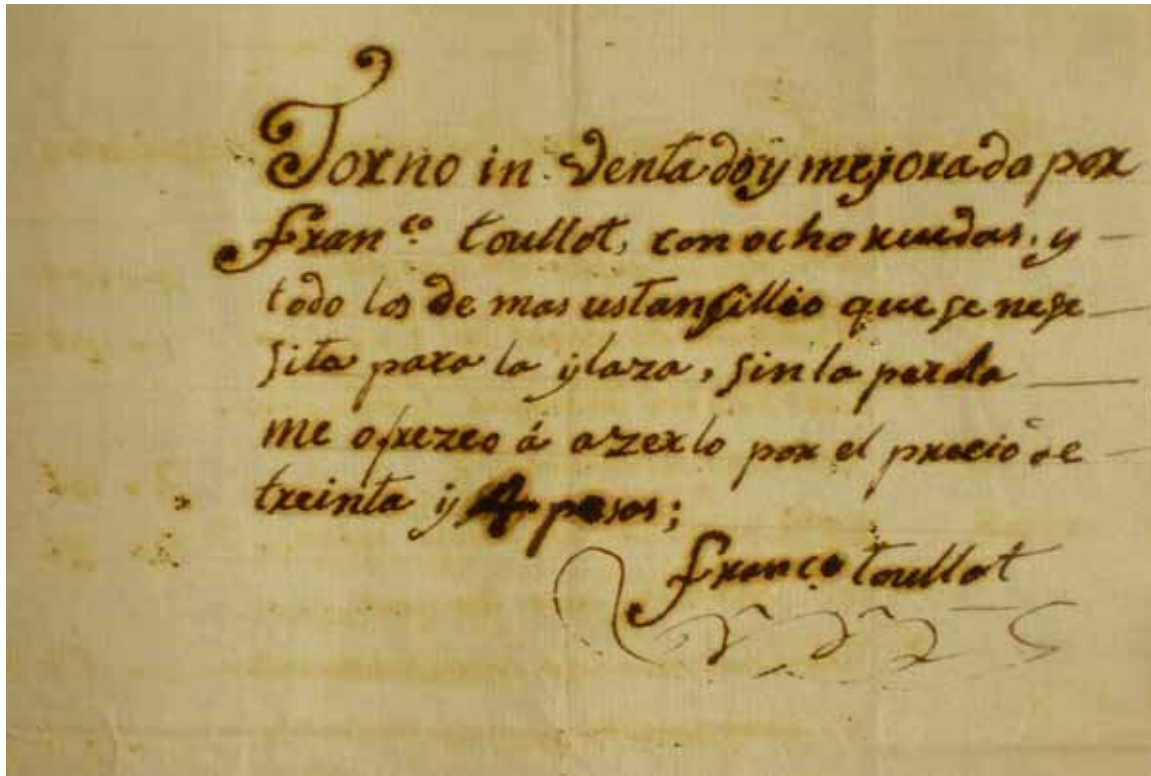 Torno in ventado y mejorado por
Fran.co toullot, con ocho ruedas, y
todo los de mas ustansillio que se nese
sita para la ylaza, sin la
me ofrezco á azerlo por el precio de
treinta y 4 pesos;
Franco toullot